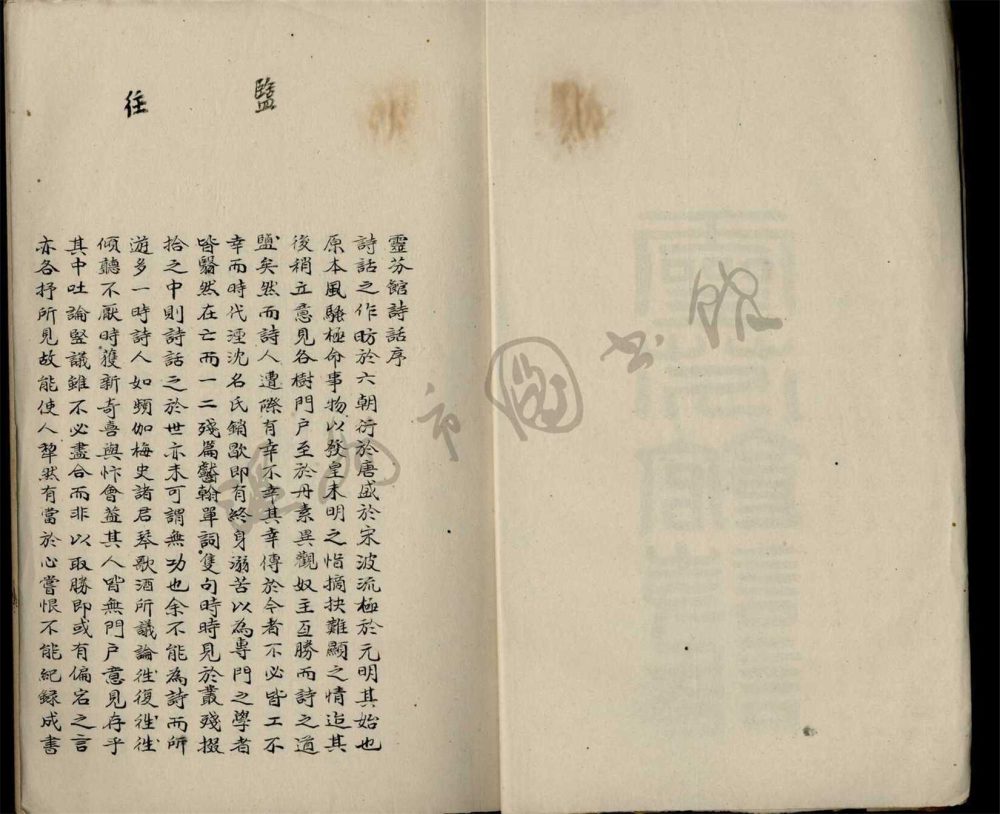 往
靈芬館詩話序
詩話之作昉於六朝衍於唐盛於宋波流極於元明其始也
原本風騷極命事物以發皇未明之恉摘抉難顯之情迨其
後稍立意見各樹門户至於丹素異觀奴主互勝而詩之道
矣然而詩人遭際有幸不幸其幸傳於今者不必皆工不
幸而時代湮沈名氏銷歇即有終身溺苦以為專門之學者
皆翳然在亡而一二殘篇翰單詞隻句時時見於叢殘掇
拾之中則詩話之於世亦未可謂無功也余不能為詩而所
遊多一時詩人如頻伽梅史諸君琴歌酒所議論徃復徃徃
傾聽不厭時獲新奇喜與忭會益其人皆無門户意見存乎
其中吐論竪議雖不必盡合而非以取勝即或有偏宕之言
亦各抒所見故能使人犂然有當於心嘗恨不能紀録成書
温州市圖书館